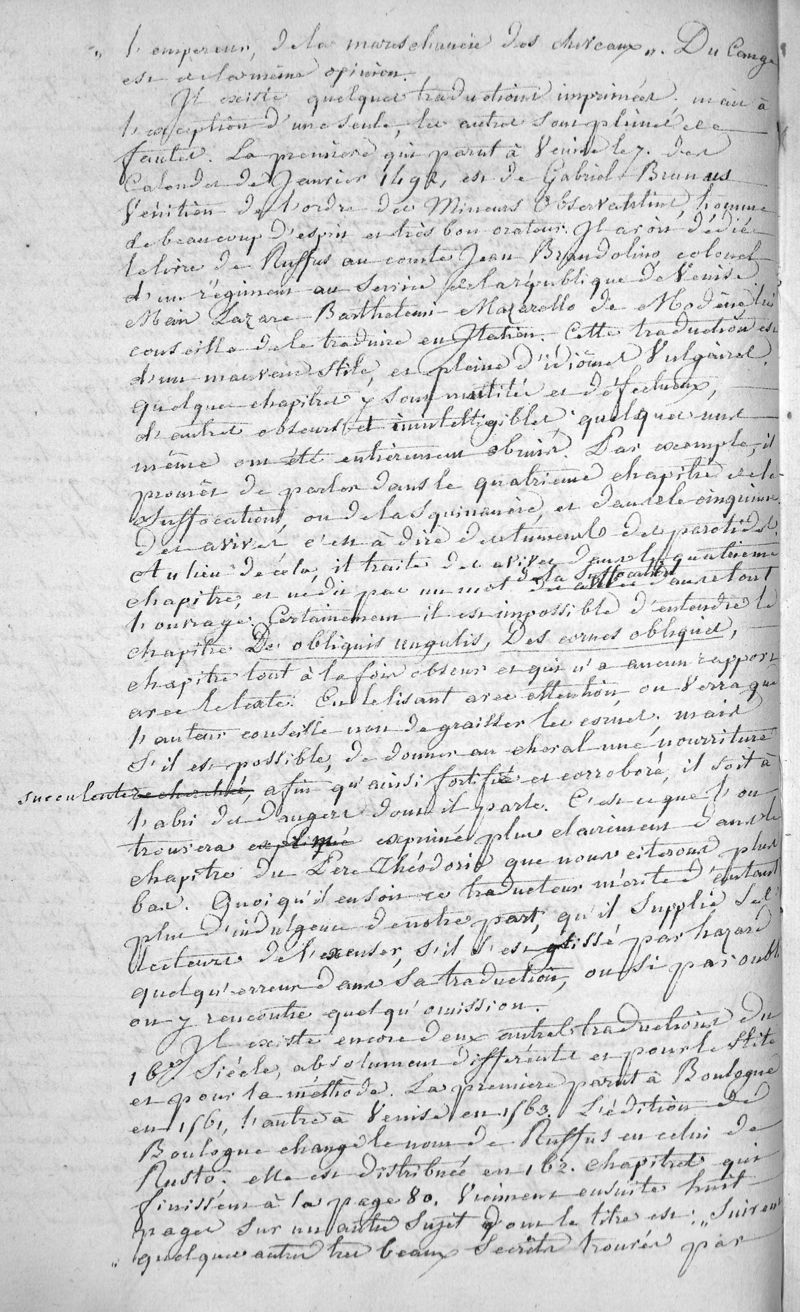 " l'empereur, de la mareschaucie des chevaux ". Du Cange
est de la même opinion.
Il existe quelques traductions imprimées. mais à
l'exception d'une seule, les autres sont pleines de
fautes. La première qui parut à Venise le 7. des
Calendes de Janvier 1492, est de Gabriel Brunus
Vénitien de l'ordre des Mineurs Observantins, homme
de beaucoup d'esprit et très bon orateur. Il avoit dédié
le livre de Ruffus au comte Jean Brandolino, colonel
d'un régiment au service de la république de Venise
Mais Lazare Barthelemi Mazarello de Modène lui
conseilla de le traduire en Italien. Cette traduction est
d'un mauvais stile, et pleine d'idiômes Vulgaires.
quelques chapitres y sont mutilés et défectueux,
d'autres obscurs et inintelligibles quelques uns
même ont été entièrement obmis. Par exemple, il
promet de parler dans le quatrième chapitre de la
suffocation, ou de la squinancie, et dans le cinquième
des avives c'est à dire des tumeurs des parotides.
Au lieu de cela, il traite des avives dans le quatrième
chapitre, et ne dit pas un mot de la suffocation dans tout
l'ouvrage. Certainement il est impossible d'entendre le
chapitre De obliquis ungulis, Des cornes obliques,
chapitre tout à la fois obscur et qui n'a aucun rapport
avec le texte. En le lisant avec attention on verra que
l'auteur conseille non de graisser les cornes, mais
s'il est possible, de donner au cheval une nourriture
succulente recherchée, afin qu'ainsi fortifié et corroboré, il soit à
l'abri des dangers dont il parle. C'est ce que l'on
trouvera expliqué exprimé plus clairement dans le
chapitre du Père Théodoric que nous citerons plus
bas. Quoi qu'il en soit ce traducteur mérite d'autant
plus d'indulgence de notre part, qu'il supplie ses
lecteurs de l'excuser, s'il s'est glissé par hazard
quelqu'erreur dans sa traduction, ou si par oubli
on y rencontre quelqu'omission.
Il existe encore deux autres traductions du
16e. Siécle, absolument différentes et pour le stile
et pour la méthode. La première parut à Boulogne
en 1561, l'autre à Venise en 1563. L'édition de
Boulogne change le nom de Ruffus en celui de
Rusto. elle est distribuée en 162. chapitres qui
finissent à la page 80. Viennent ensuite huit
pages sur un autre sujet dont le titre est: " Suivent
" quelques autres très beaux secrets trouvés par